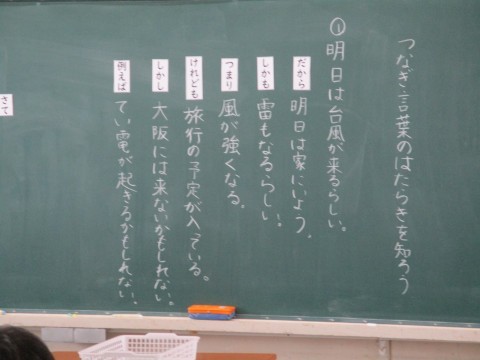 つなぎ言葉のはたらきを知ろう
① 明日は台風が来るらしい。
だから 明日は家にいよう。
しかも 雷もなるらしい。
つまり 風が強くなる。
けれども 旅行の予定が入っている。
しかし 大阪には来ないかもしれない。
例えば てい電が起きるかもしれない。
さて